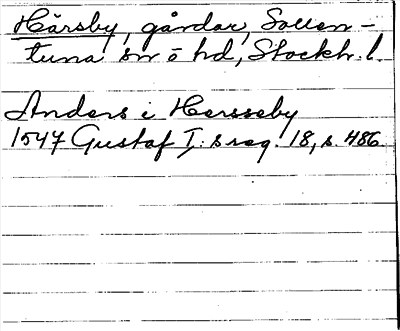 Härsby, gårdar, Sollen-
tuna sn o hd, Stockh. l.
Anders i Hersseby
1547 Gustaf I:s reg. 18, s. 486.